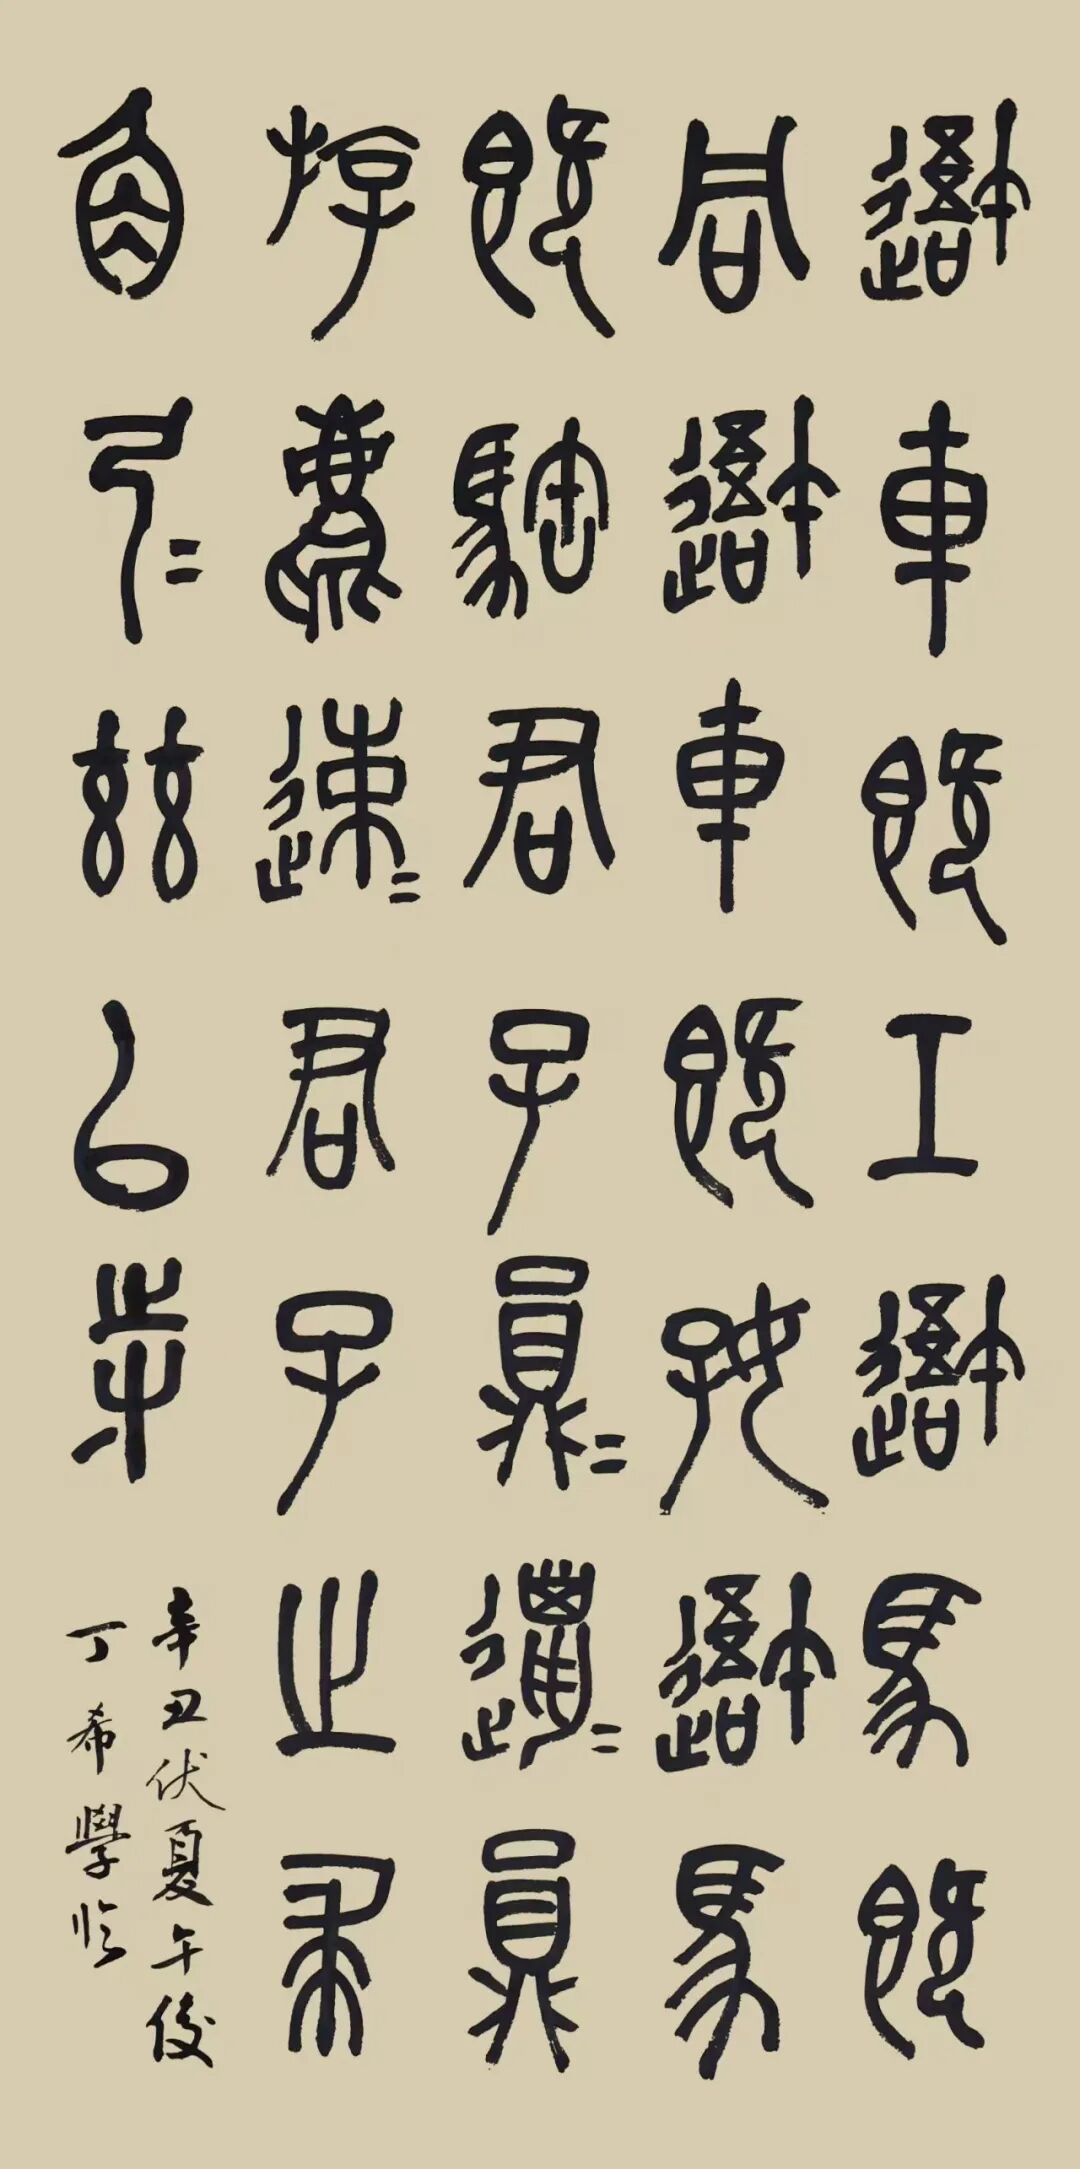 吾車既工吾馬既
同吾車既好吾馬
既𩣡君子員=邋=員
斿麀速=君子之求
角弓=茲以寺
辛丑伏夏午後
丁希學臨